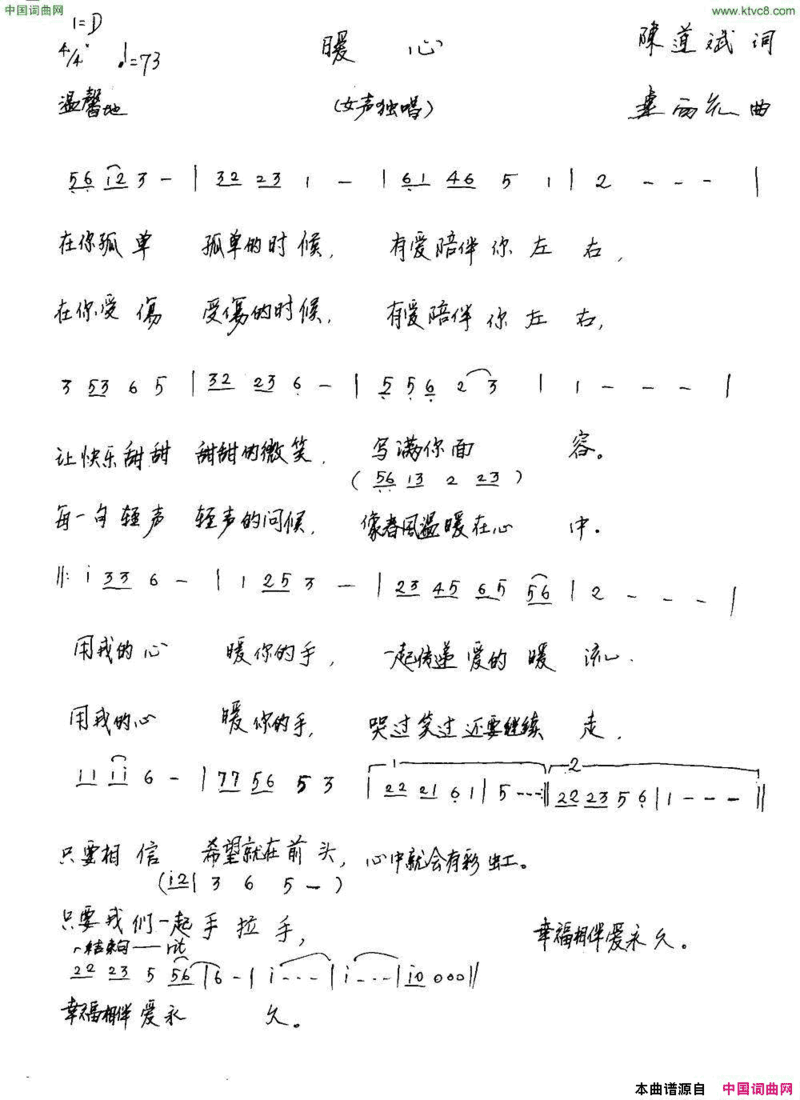 中国词曲网 www.ktvc8.com
1=D
4/4 ♩=73 暖 心 陳道斌 词
温馨地 (女声独唱) 曲
56 i2 3 - | 32 23 1 - | 61 46 5 1 | 2 - - - |
在你孤单 孤单的时候， 有爱陪伴你左右，
在你受傷 受傷的时候， 有爱陪伴你左右，
3 53 6 5 | 32 23 6 - | 5 5 6 2 3 | 1 - - - |
让快乐甜甜 甜甜的微笑， 写满你面 容。
( 56 13 2 23 )
每一句轻声 轻声的问候， 像春风温暖在心 中.
‖: i 33 6 - | 1 25 3 - | 23 45 65 56 | 2 - - - |
用我的心 暖你的手， 一起传递爱的暖 流.
用我的心 暖你的手， 哭过笑过还要继续 走，
11 ii 6 - | 77 56 5 3 | 1 22 21 6 1 | 5 - - - :‖ 2 22 23 5 6 | 1 - - - ‖
只要相信 希望就在前头， 心中就会有彩虹。
(i2 | 3 6 5 - )
只要我们一起手拉手， 幸福相伴爱永久。
结束句 —— rit
22 23 5 56 | 6 - | i - - - | i - - - | i0 000 ‖
幸福相伴爱永 久。
本曲谱源自 中国词曲网